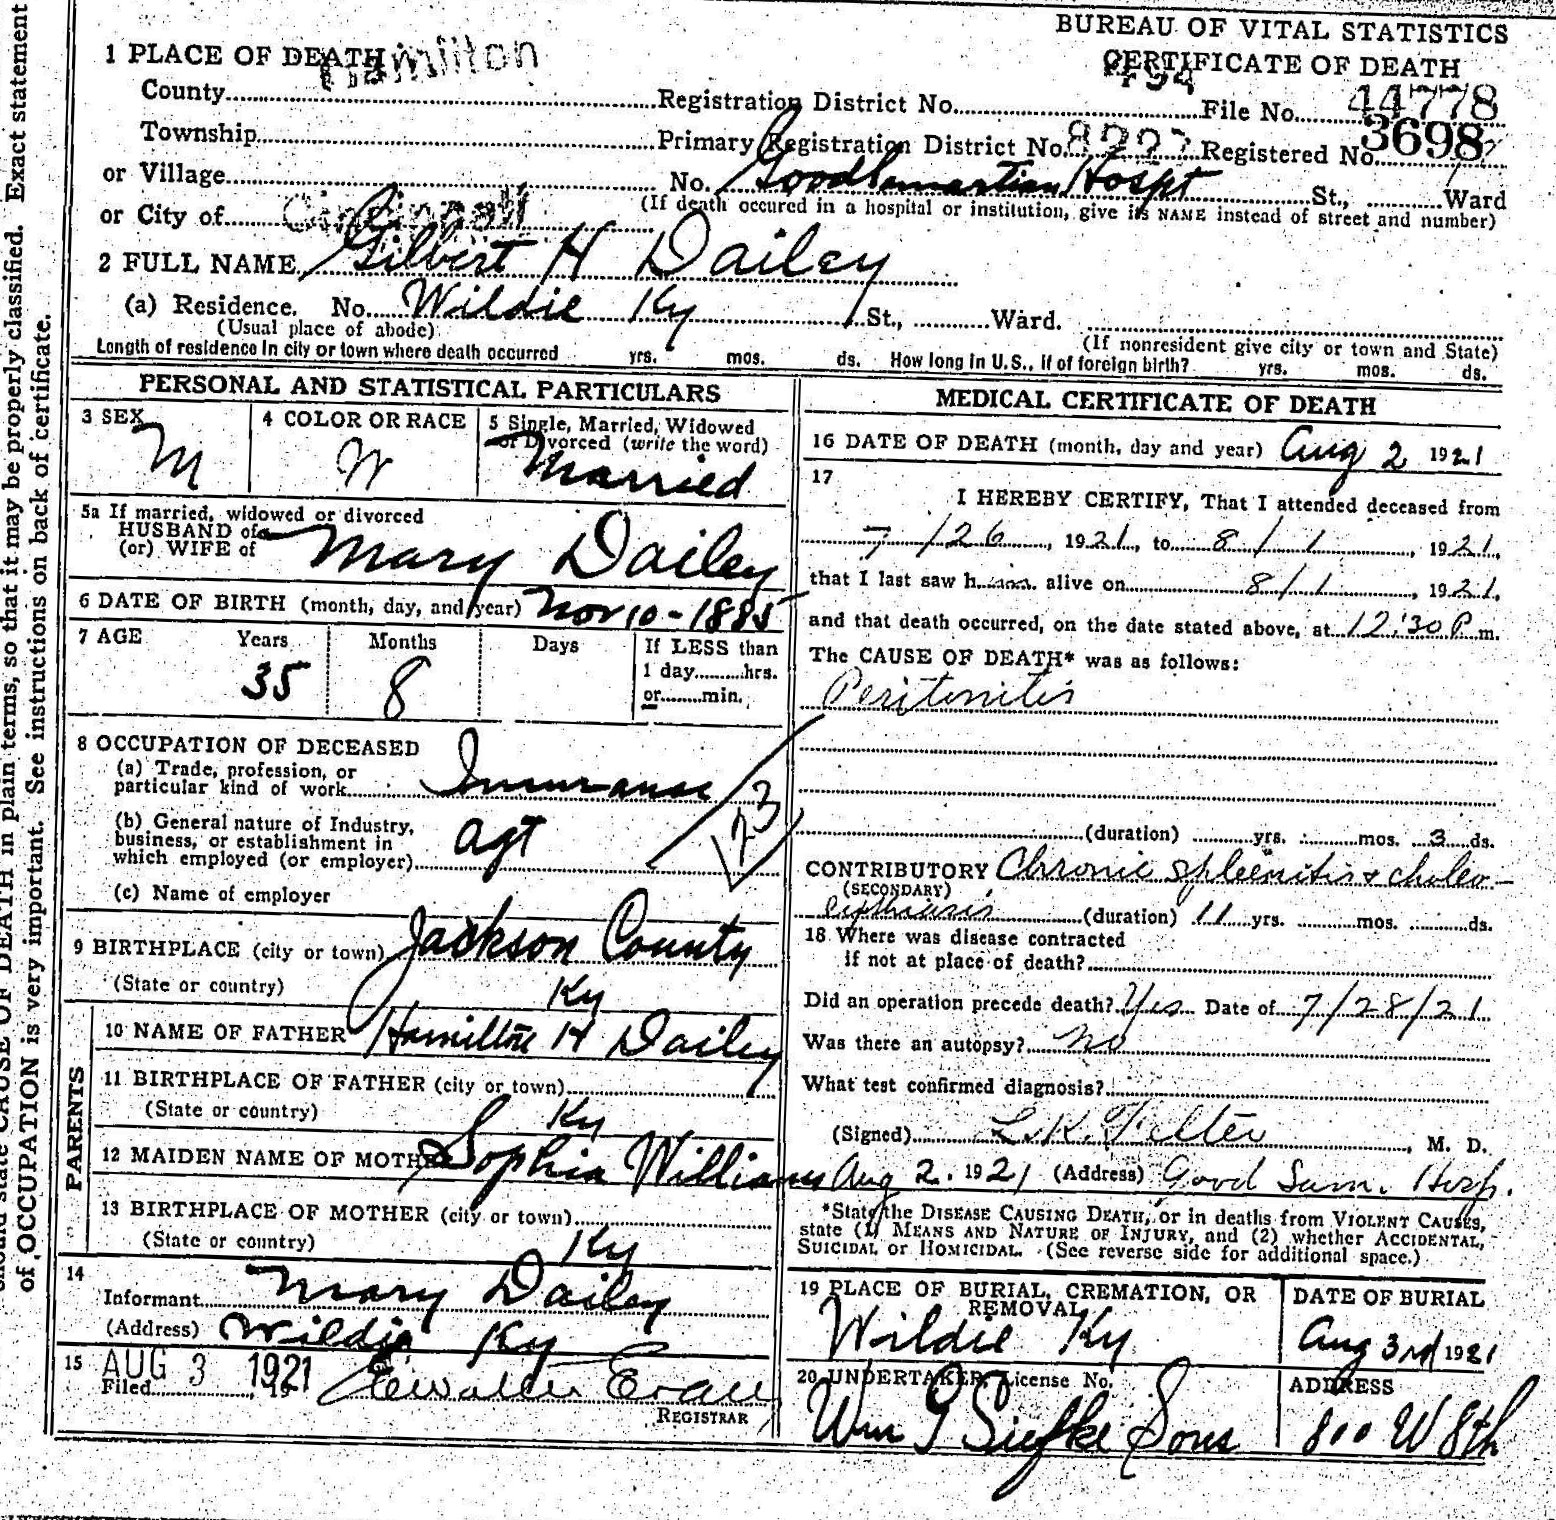 BUREAU OF VITAL STATISTICS
CERTIFICATE OF DEATH
1 PLACE OF DEATH
County Hamilton Registration District No. 494 File No. 44778
Township Primary Registration District No. 8227 Registered No. 3698
or Village No. Good Samartian Hospt St., Ward
or City of Cincinnati (If death occured in a hospital or institution, give its NAME instead of street and number)
2 FULL NAME Gilbert H Dailey
(a) Residence. No. Wildie Ky St., Ward.
(Usual place of abode) (If nonresident give city or town and State)
Length of residence in city or town where death occurred yrs. mos. ds. How long in U.S., if of foreign birth? yrs. mos. ds.
PERSONAL AND STATISTICAL PARTICULARS
3 SEX
M
4 COLOR OR RACE
W
5 Single, Married, Widowed
or Divorced (write the word)
Married
5a If married, widowed or divorced
HUSBAND of
(or) WIFE of
Mary Dailey
6 DATE OF BIRTH (month, day, and year) Nov 10-1885
7 AGE Years Months Days If LESS than
1 day hrs.
or min.
35 8
8 OCCUPATION OF DECEASED
(a) Trade, profession, or
particular kind of work Insurance
(b) General nature of Industry,
business, or establishment in
which employed (or employer) agt
(c) Name of employer
9 BIRTHPLACE (city or town) Jackson County
(State or country) Ky
PARENTS
10 NAME OF FATHER Hamilton H Dailey
11 BIRTHPLACE OF FATHER (city or town)
(State or country) Ky
12 MAIDEN NAME OF MOTHER Sophia Williams
13 BIRTHPLACE OF MOTHER (city or town)
(State or country) Ky
14
Informant Mary Dailey
(Address) Wildie Ky
15 AUG 3 1921
Filed , 19
REGISTRAR
MEDICAL CERTIFICATE OF DEATH
16 DATE OF DEATH (month, day and year) Aug 2 1921
17
I HEREBY CERTIFY, That I attended deceased from
7/26, 1921, to 8/1, 1921,
that I last saw him alive on 8/1, 1921,
and that death occurred, on the date stated above, at 12:30 P m.
The CAUSE OF DEATH* was as follows:
Peritonitis
(duration) yrs. mos. 3 ds.
CONTRIBUTORY Chronic spleenitis &
(SECONDARY)
(duration) 11 yrs. mos. ds.
18 Where was disease contracted
if not at place of death?
Did an operation precede death? Yes Date of 7/28/21
Was there an autopsy? No
What test confirmed diagnosis?
(Signed) L.K. , M. D.
Aug 2. 1921 (Address) Good Sam. Hosp.
*State the DISEASE CAUSING DEATH, or in deaths from VIOLENT CAUSES,
state (1) MEANS AND NATURE OF INJURY, and (2) whether ACCIDENTAL,
SUICIDAL or HOMICIDAL. (See reverse side for additional space.)
19 PLACE OF BURIAL, CREMATION, OR
REMOVAL
Wildie Ky
DATE OF BURIAL
Aug 3rd 1921
20 UNDERTAKER, License No.
Wm G Siefke Sons
ADDRESS
800 W 8th
should state CAUSE OF DEATH in plain terms, so that it may be properly classified. Exact statement
of OCCUPATION is very important. See instructions on back of certificate.